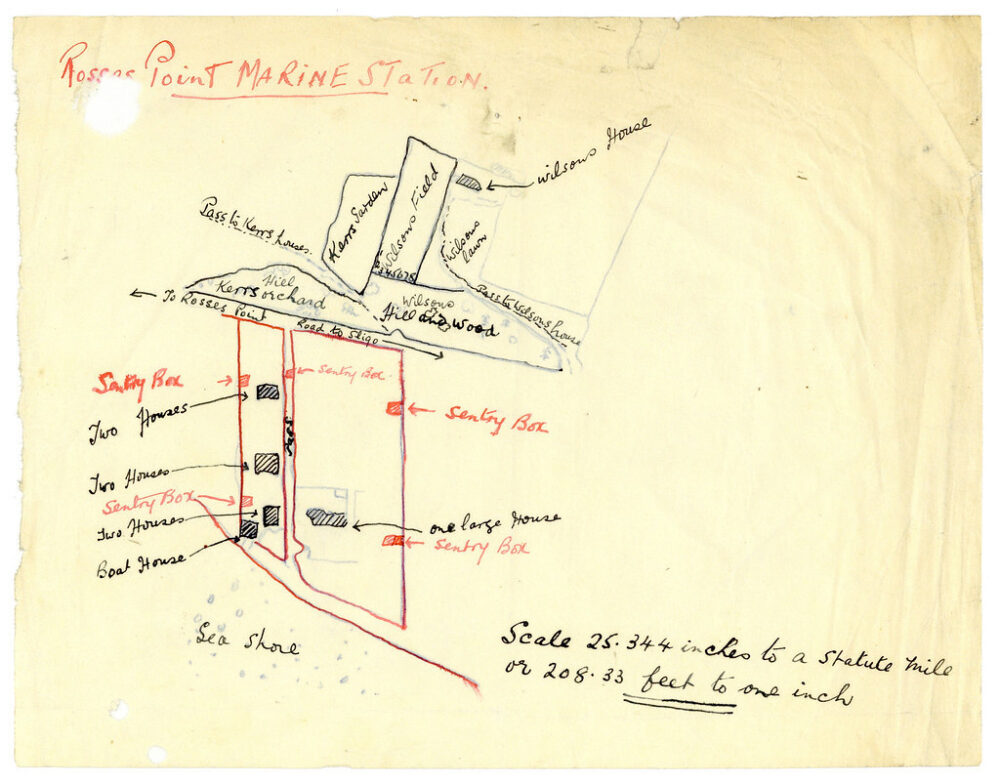 Rosses Point MARINE STATION.
Wilsons House
Pass to Kerrs houses.
Kerrs Garden
Wilsons Field
Wilsons lawn
Pass to Wilsons house
Hill
Kerrs orchard
Wilsons
Hill and Wood
← To Rosses Point
Road to Sligo
Sentry Box
Sentry Box
Two Houses
Sentry Box
Pass
Two Houses
Sentry Box
Two Houses
one large House
Sentry Box
Boat House
Sea Shore
Scale 25.344 inches to a Statute Mile
or 208.33 feet to one inch